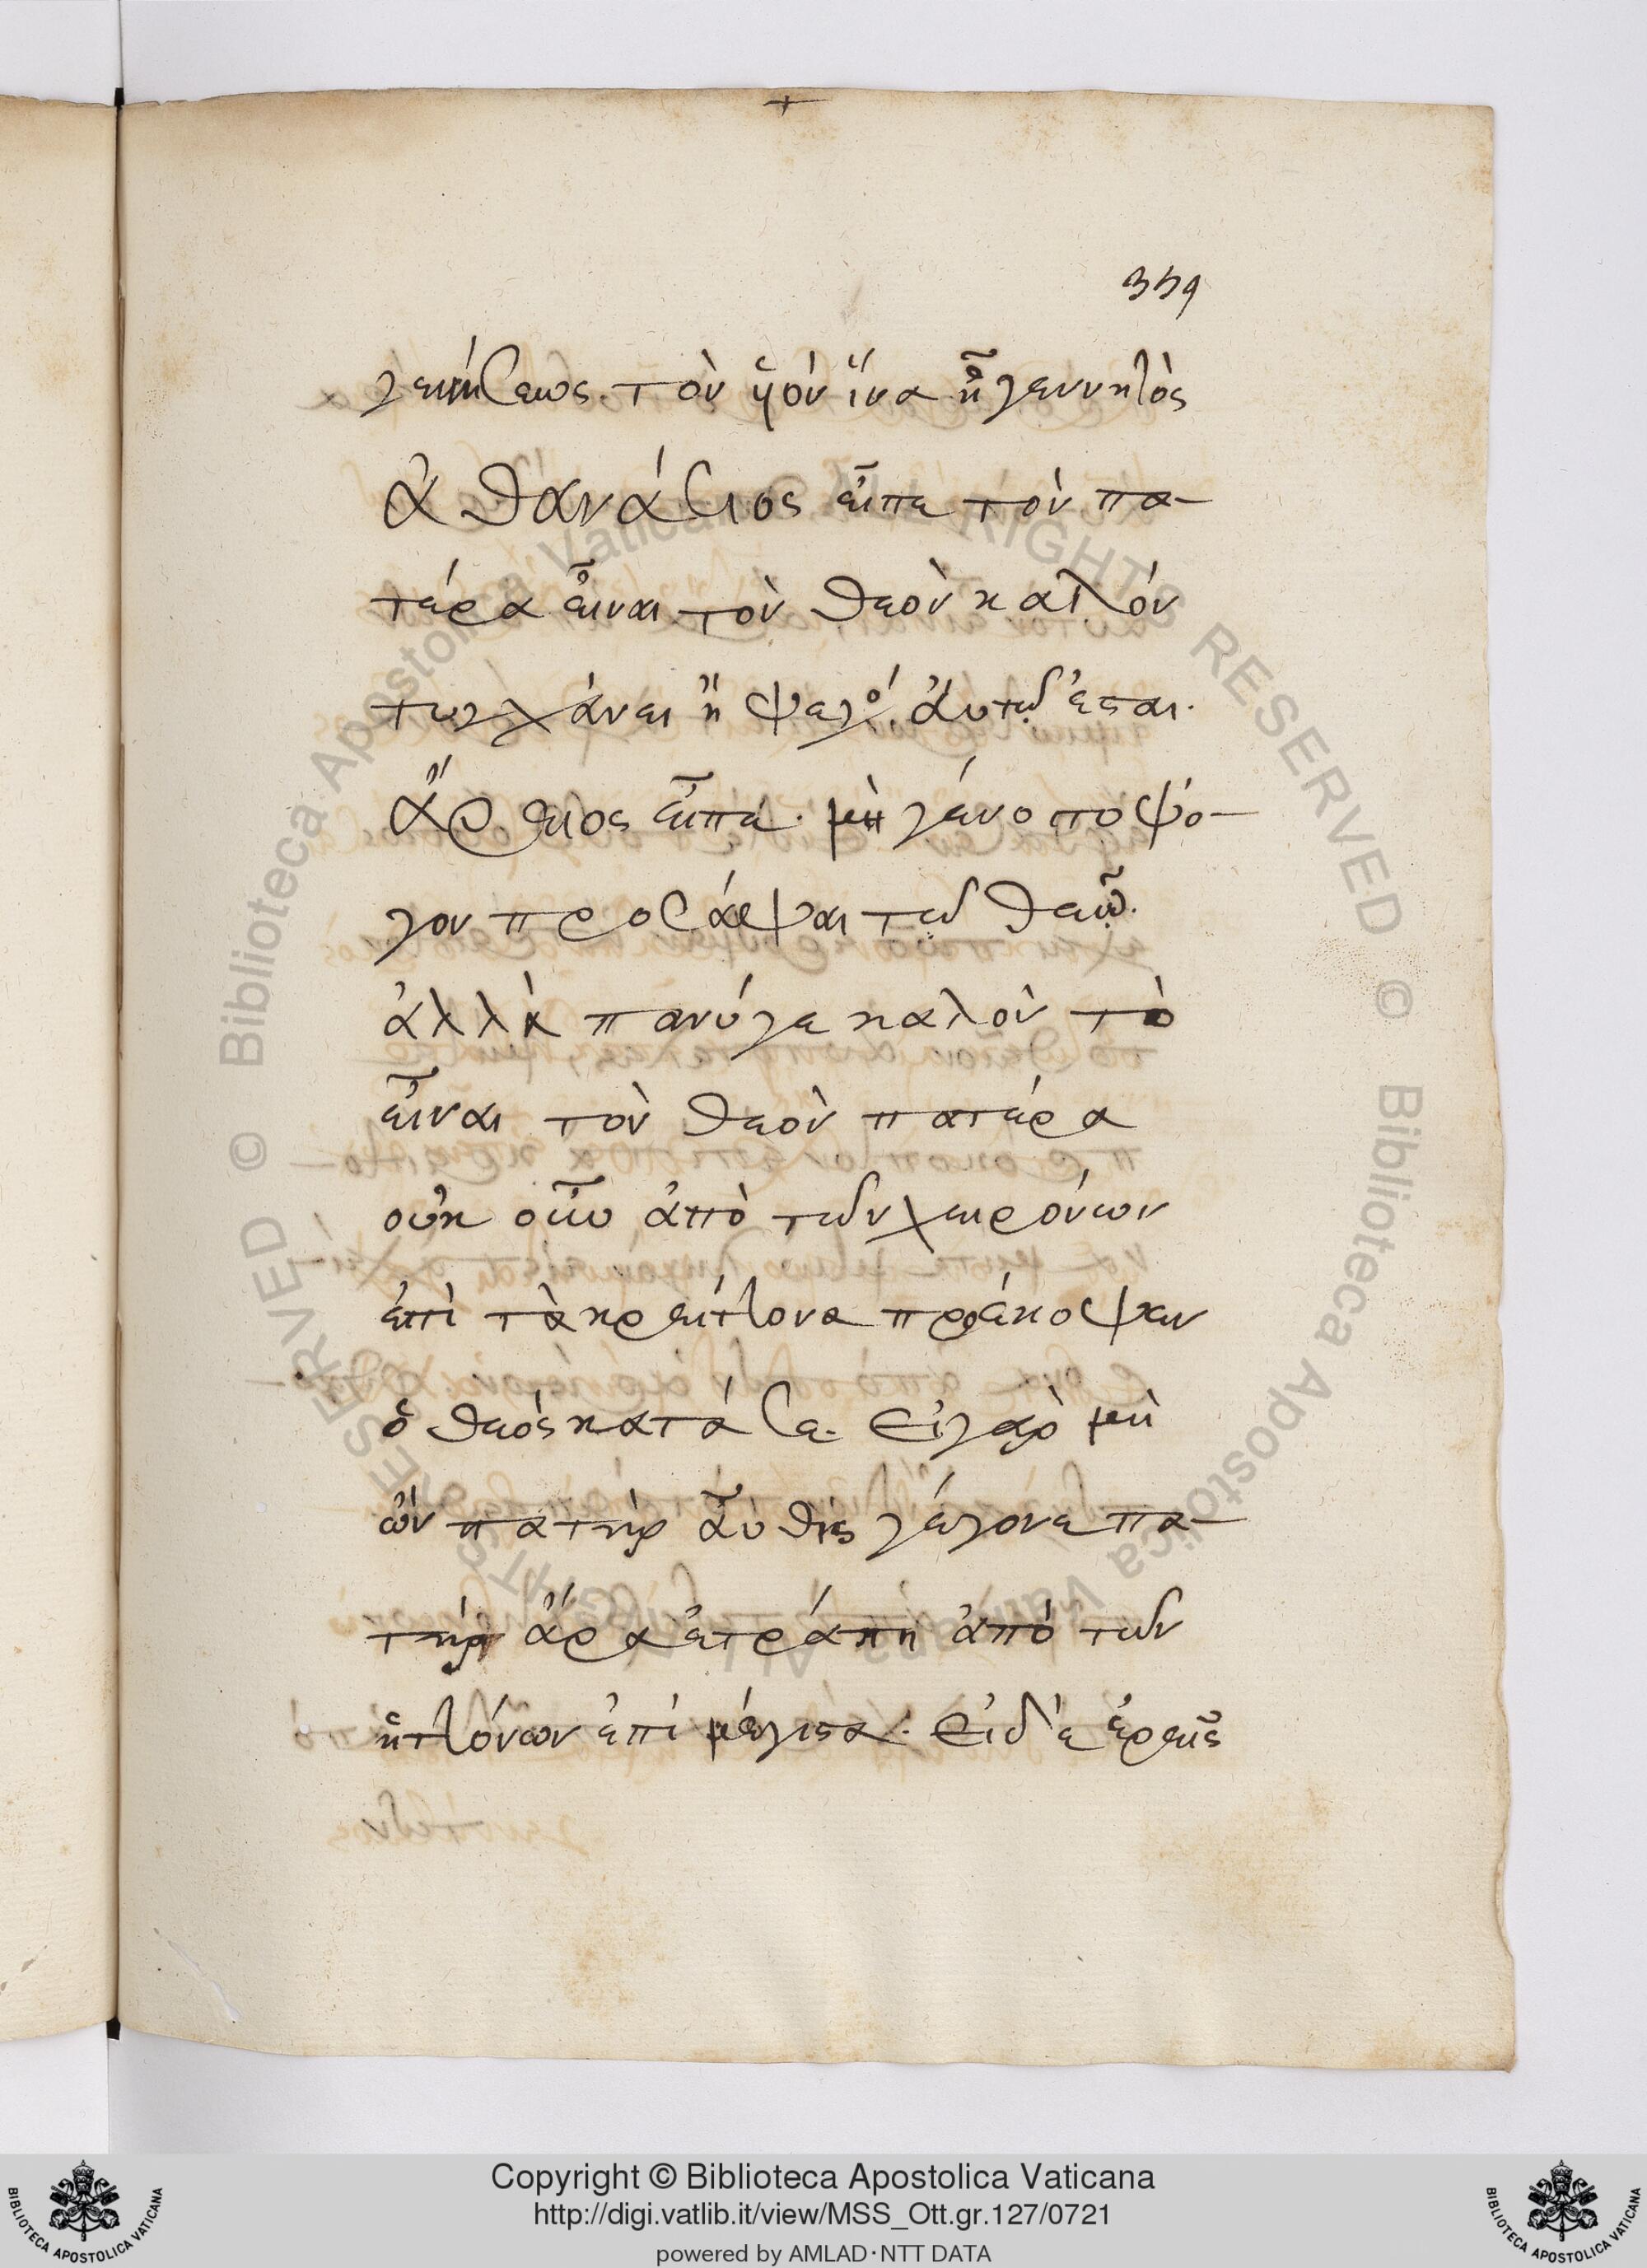 359
γεννήσεως τὸν ὑὸν ἵνα ἦ γεννητὸς
Ἀθανάσιος εἶπε τὸν πα-
τέρα εἶναι τὸν θεὸν καλόν
τυγχάνει ἢ αὐτῷ ἔσται.
Ἄρειος εἶπε. μὴ γένοιτο ψό-
γον προσάψαι τῷ θεῷ.
ἀλλὰ πανύγε καλὸν τὸ
εἶναι τὸν θεὸν πατέρα
οὐκ οὖν ἀπὸ τῶν χειρόνων
ἐπὶ τὰ κρείττονα πρέκοψεν
ὁ θεὸς κατά σε. Εἰ γὰρ μὴ
ὢν πατὴρ αὖθις γέγονε πα-
τήρ ἄρα ἐτράπη ἀπὸ τῶν
ἡττόνων ἐπὶ μέγιστα. Εἰ δὲ ἐρεῖς
Copyright © Biblioteca Apostolica Vaticana
http://digi.vatlib.it/view/MSS_Ott.gr.127/0721
powered by AMLAD·NTT DATA
BIBLIOTECA APOSTOLICA VATICANA
BIBLIOTECA APOSTOLICA VATICANA
© Biblioteca Apostolica Vaticana ALL RIGHTS RESERVED © Biblioteca Apostolica Vaticana ALL RIGHTS RESERVED